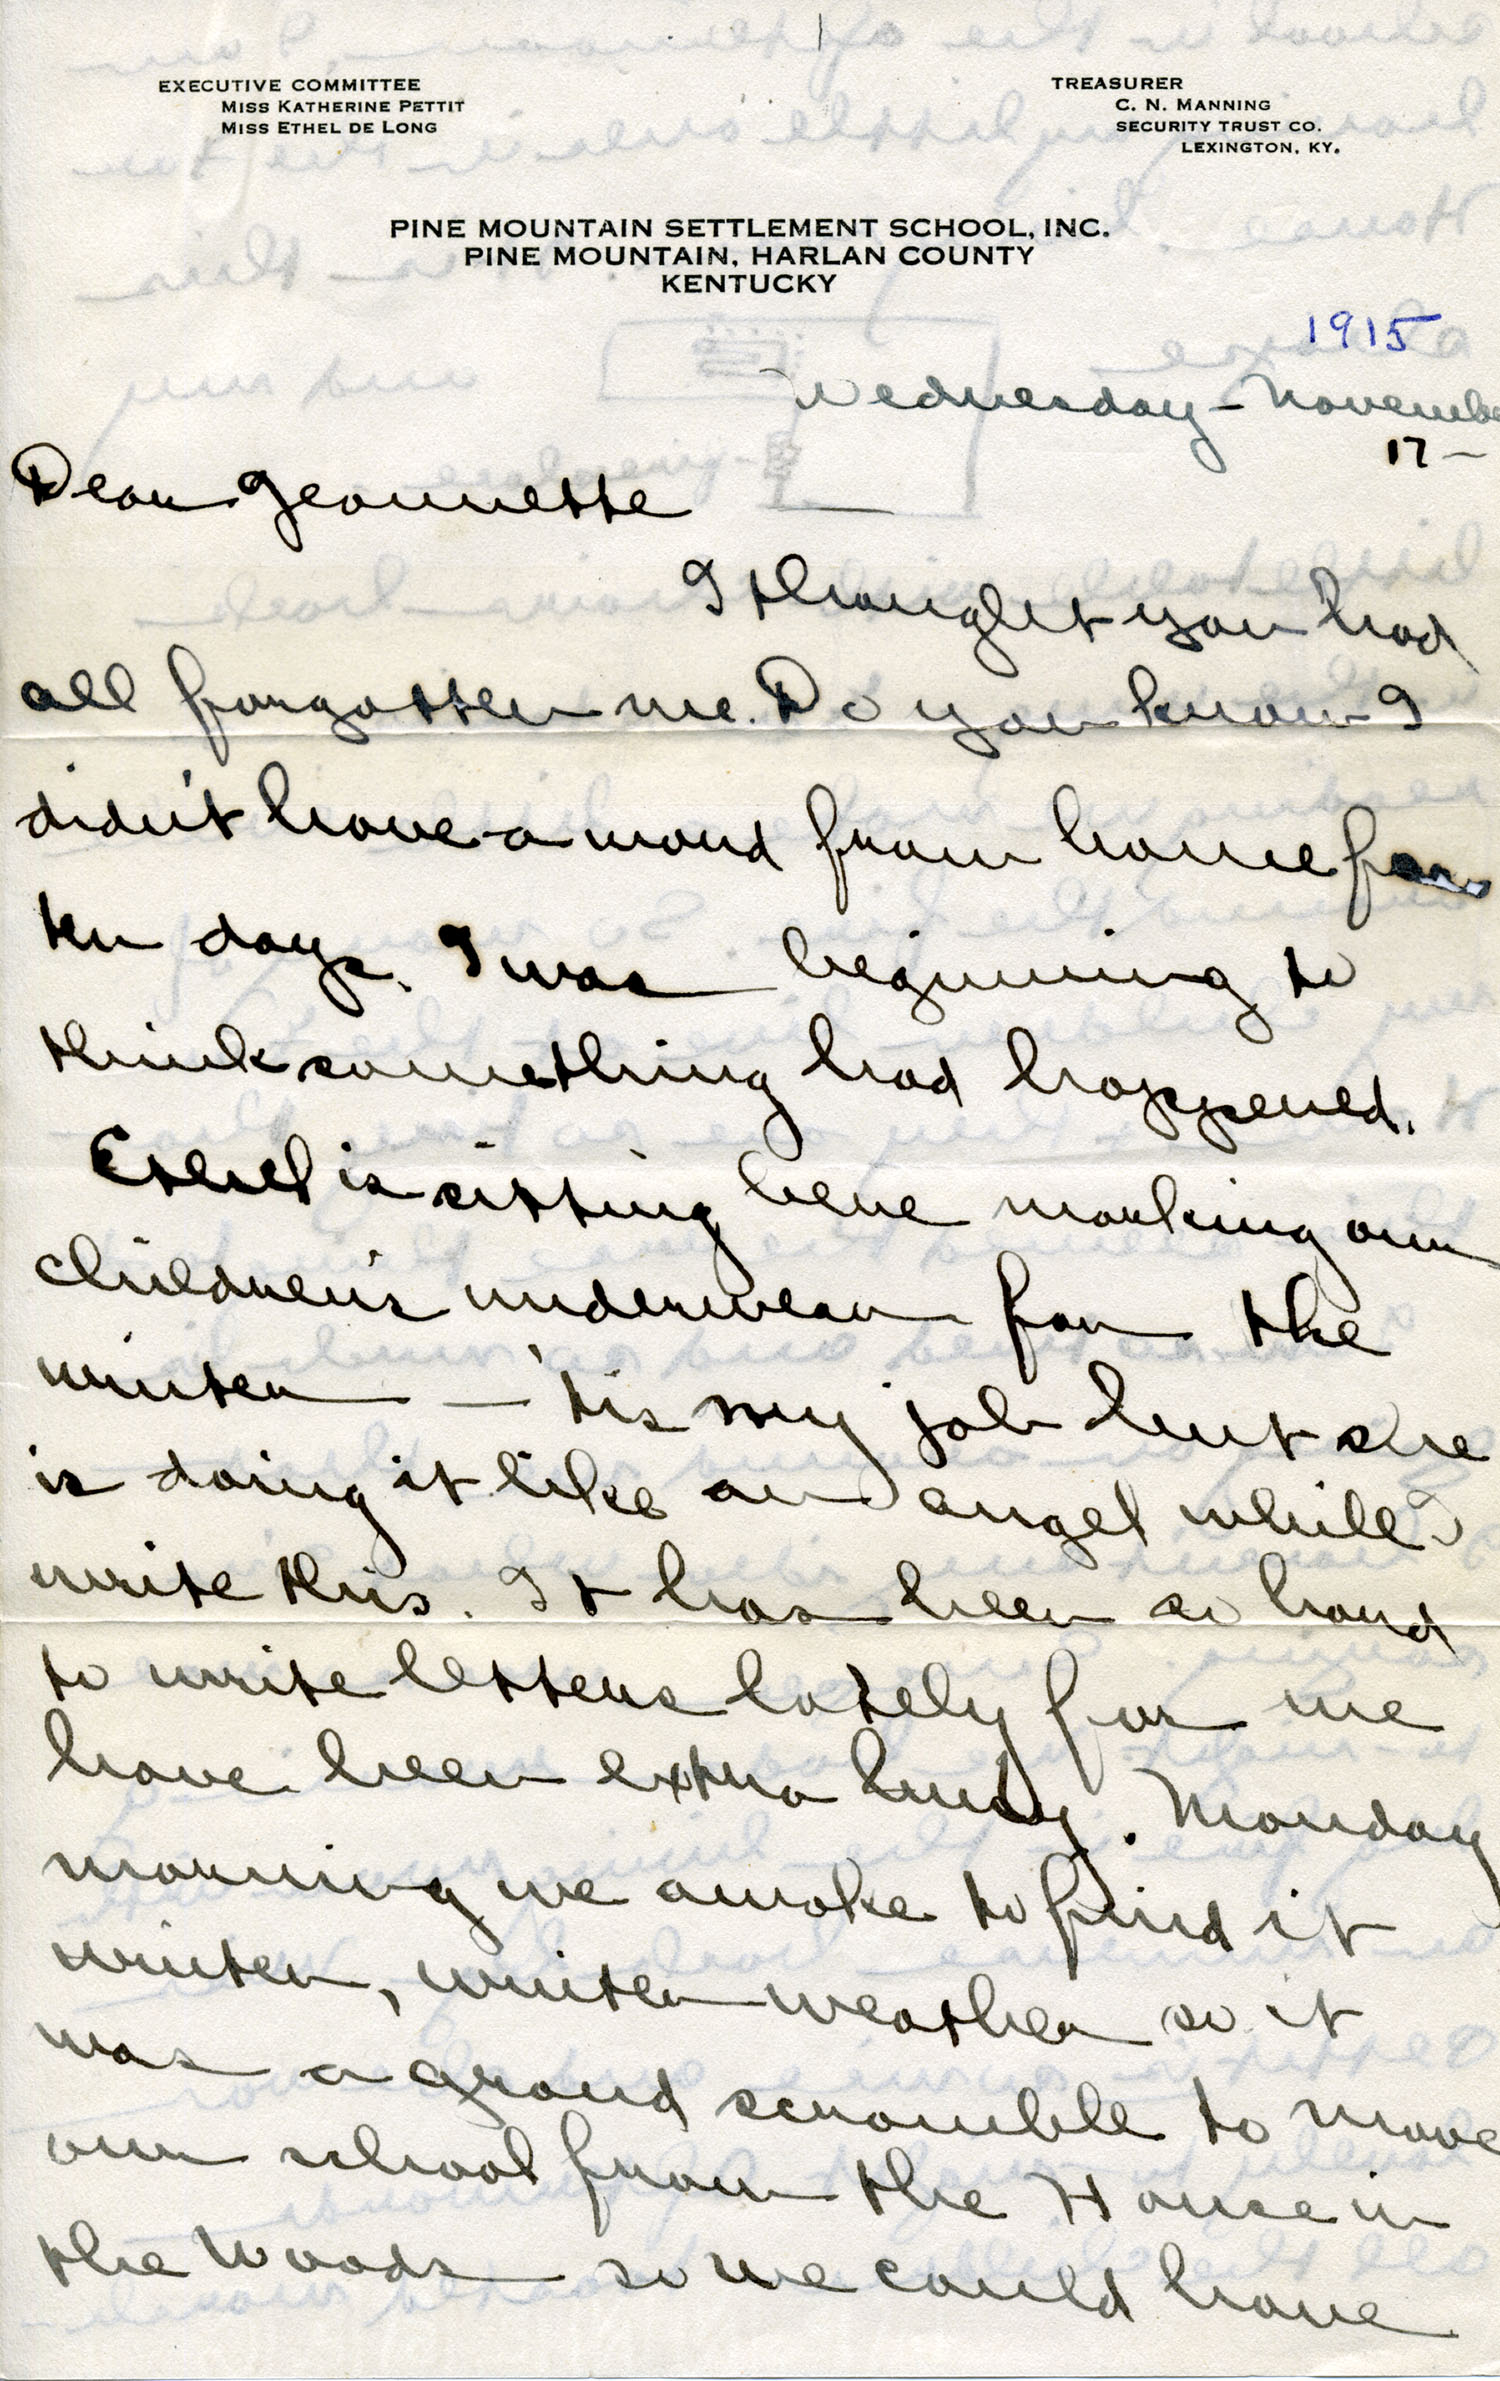 EXECUTIVE COMMITTEE
MISS KATHERINE PETTIT
MISS ETHEL DE LONG
TREASURER
C. N. MANNING
SECURITY TRUST CO.
LEXINGTON, KY.
PINE MOUNTAIN SETTLEMENT SCHOOL, INC.
PINE MOUNTAIN, HARLAN COUNTY
KENTUCKY
1915
Wednesday - November
17 -
Dear Jeannette
I thought you had
all forgotten me. Do you know I
didn't have a word from home for
ten days. I was beginning to
think something had happened.
Ethel is sitting here marking our
children's underwear for the
winter - 'tis my job but she
is doing it like an angel while I
write this. It has been so hard
to write letters lately for we
have been extra busy. Monday
morning we awoke to find it
winter, winter weather so it
was a grand scramble to move
our school from the House in
the Woods so we could have